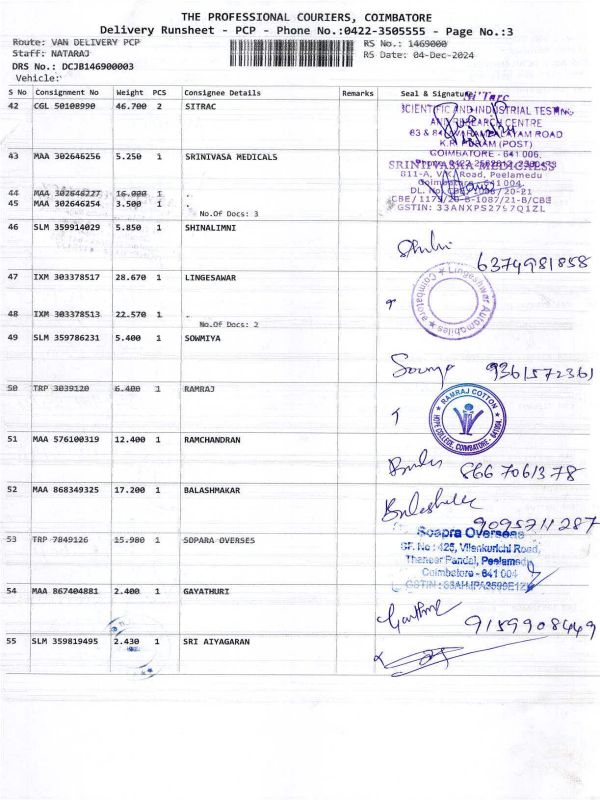 THE PROFESSIONAL COURIERS, COIMBATORE
Delivery Runsheet - PCP - Phone No.:0422-3505555 - Page No.:3
Route: VAN DELIVERY PCP
RS No.: 1469000
Staff: NATARAJ
RS Date: 04-Dec-2024
DRS No.: DCJB146900003
Vehicle:
S No Consignment No Weight PCS Consignee Details Remarks Seal & Signature
42 CGL 50108990 46.700 2 SITRAC
SCIENTIFIC AND INDUSTRIAL TESTING
AND RESEARCH CENTRE
K.R. PURAM (POST)
COIMBATORE - 641 006.
43 MAA 302646256 5.250 1 SRINIVASA MEDICALS
SRINIVASA MEDICALSS
811-A, V.K. Road, Peelamedu
Coimbatore - 641 004.
44 MAA 302646227 16.000 1 .
45 MAA 302646254 3.500 1 .
CBE/1173/20-B-1087/21-B/CBE
GSTIN: 33ANXPS2757Q1ZL
No.Of Docs: 3
46 SLM 359914029 5.850 1 SHINALIMNI
6374981858
47 IXM 303378517 28.670 1 LINGESAWAR
Lingeshwar Automobiles
Coimbatore
48 IXM 303378513 22.570 1 .
No.Of Docs: 2
49 SLM 359786231 5.400 1 SOWMIYA
9361572361
50 TRP 3039120 6.400 1 RAMRAJ
RAMRAJ COTTON
HOPE COLLEGE, COIMBATORE - 641004.
51 MAA 576100319 12.400 1 RAMCHANDRAN
8667061378
52 MAA 868349325 17.200 1 BALASHMAKAR
9095711287
53 TRP 7849126 15.980 1 SOPARA OVERSES
Soapra Overseas
SF. No : 425, Vilankurichi Road,
Thaneer Pandal, Peelamedu
Coimbatore - 641 004
54 MAA 867404881 2.400 1 GAYATHURI
9159908449
55 SLM 359819495 2.430 1 SRI AIYAGARAN